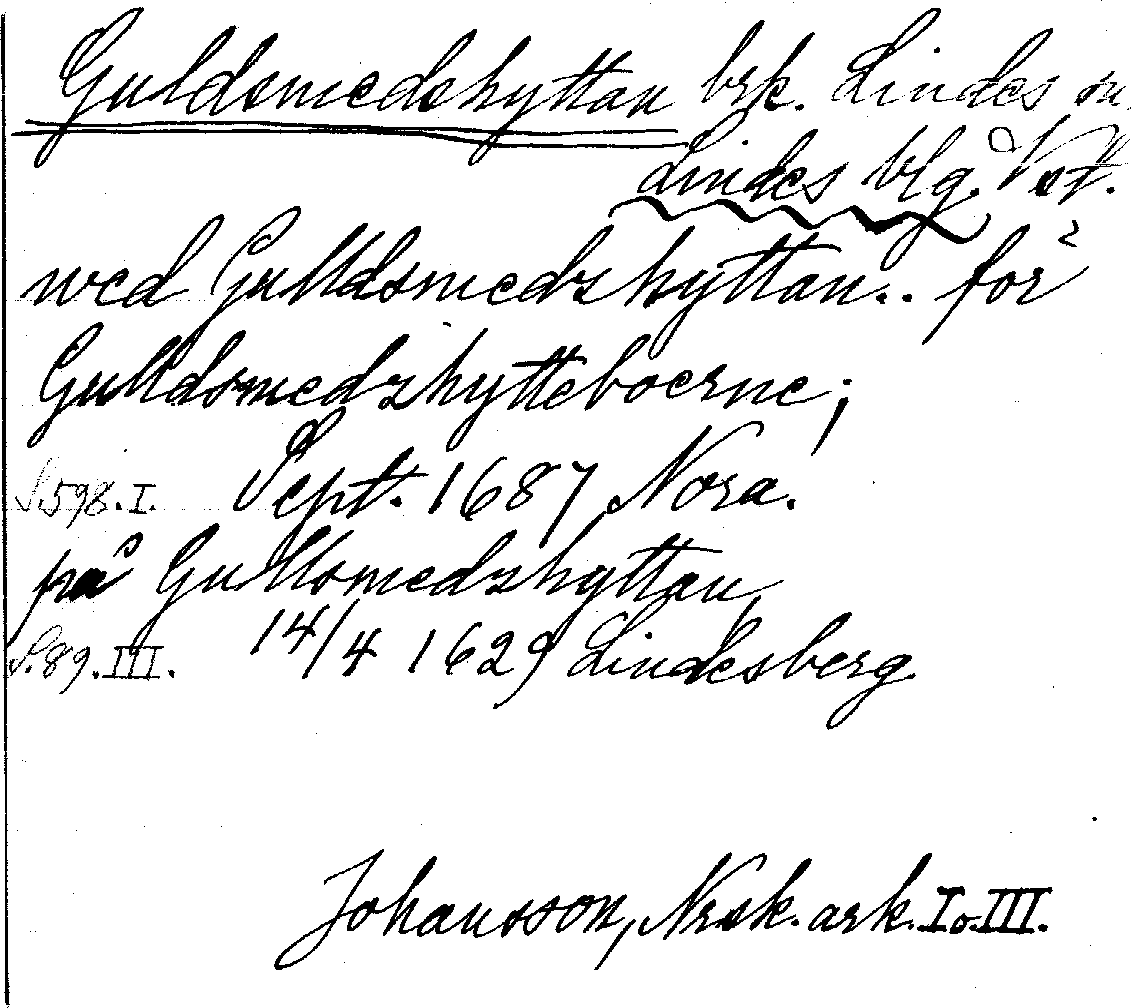 Guldsmedshyttan brk. Lindes sn.
Lindes blg. Vstl.
wed Gulldsmedzhyttan.. för
Gulldsmedzhytteboerne;
S.598.I. Sept. 1687 Nora.
på Gullsmedzhyttan,
S.89.III. 14/4 1629 Lindesberg
Johansson, Norsk. ark. I o. III.